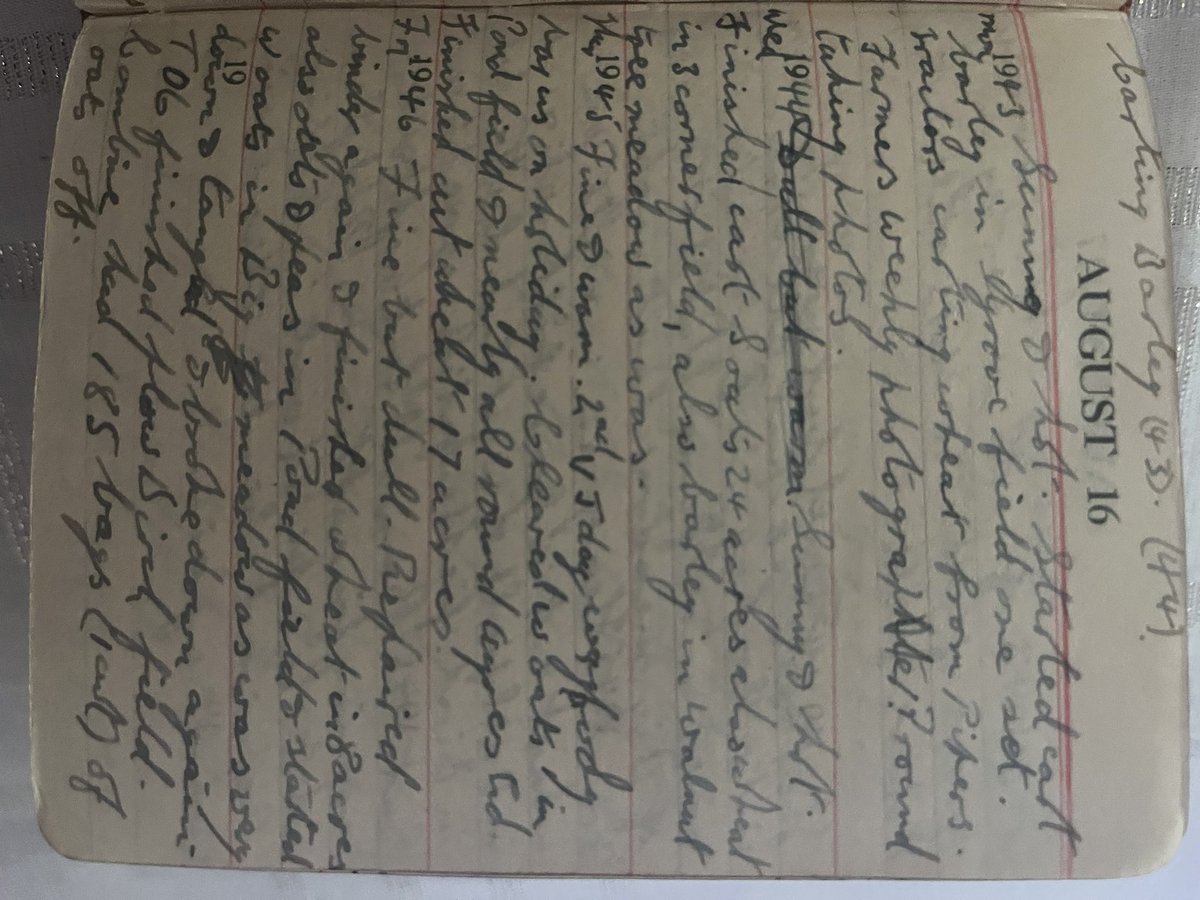 carting Barley (43). (44).
AUGUST 16
1943 Sunny & hot. Started cart
Mon barley in Grove field one set.
Tractors carting wheat from Pipers.
Farmers weekly photographer round
taking photos.
1944 Dull but warm. Sunny & hot.
Wed Finished cart S oats 24 acres also wheat
in 3 corner field, also barley in walnut
tree meadow as was.
1945 Fine & warm. 2nd VJ day everybody
Thu has us on holiday. Cleared W oats in
Pond field & nearly all round Ayres End.
Finished cut wheat 17 acres.
1946 Fine but dull. Repaired
Fri binder again & finished wheat in 8 acres
also oats & peas in Pond field & started
W oats in Big meadow as was very
19 down & tangled & broke down again.
TO6 finished plow Birch field.
Combine had 185 bags (1 cwt) of
oats off.